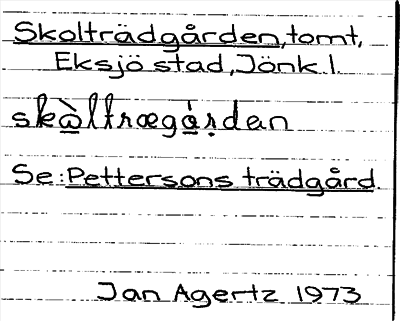 Skolträdgården, tomt,
Eksjö stad, Jönk. l.
skὰltrægάṛdan
Se: Pettersons trädgård.
Jan Agertz 1973